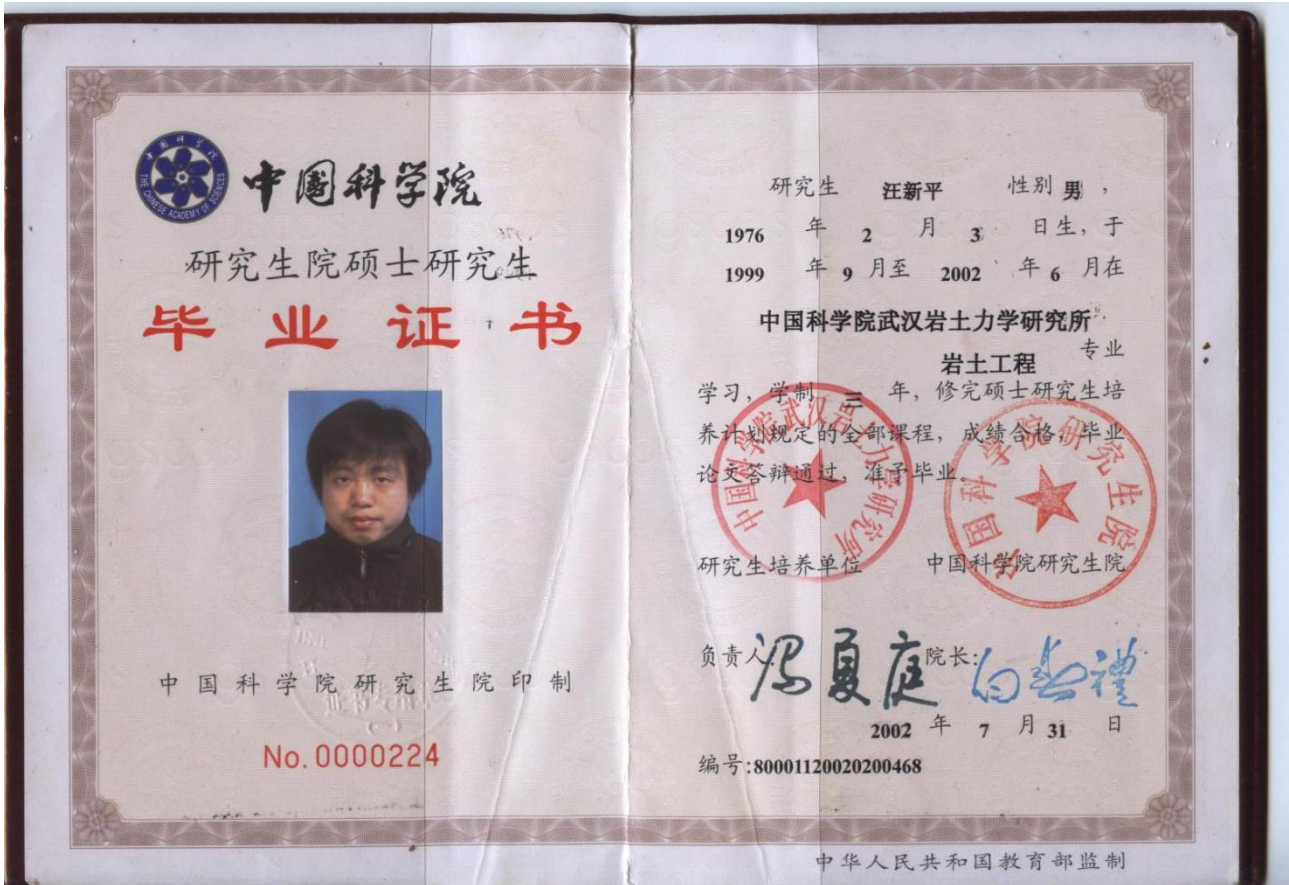 中国科学院
THE CHINESE ACADEMY OF SCIENCES
中国科学院
研究生院硕士研究生
毕业证书
中国科学院研究生院印制
No.0000224
研究生 汪新平 性别 男,
1976 年 2 月 3 日生,于
1999 年 9 月至 2002 年 6 月在
中国科学院武汉岩土力学研究所
岩土工程 专业
学习,学制 三 年,修完硕士研究生培
养计划规定的全部课程,成绩合格,毕业
论文答辩通过,准予毕业。
中国科学院武汉岩土力学研究所
中国科学院研究生院
研究生培养单位 中国科学院研究生院
负责人 冯夏庭 院长: 白春礼
2002 年 7 月 31 日
编号:80001120020200468
中华人民共和国教育部监制